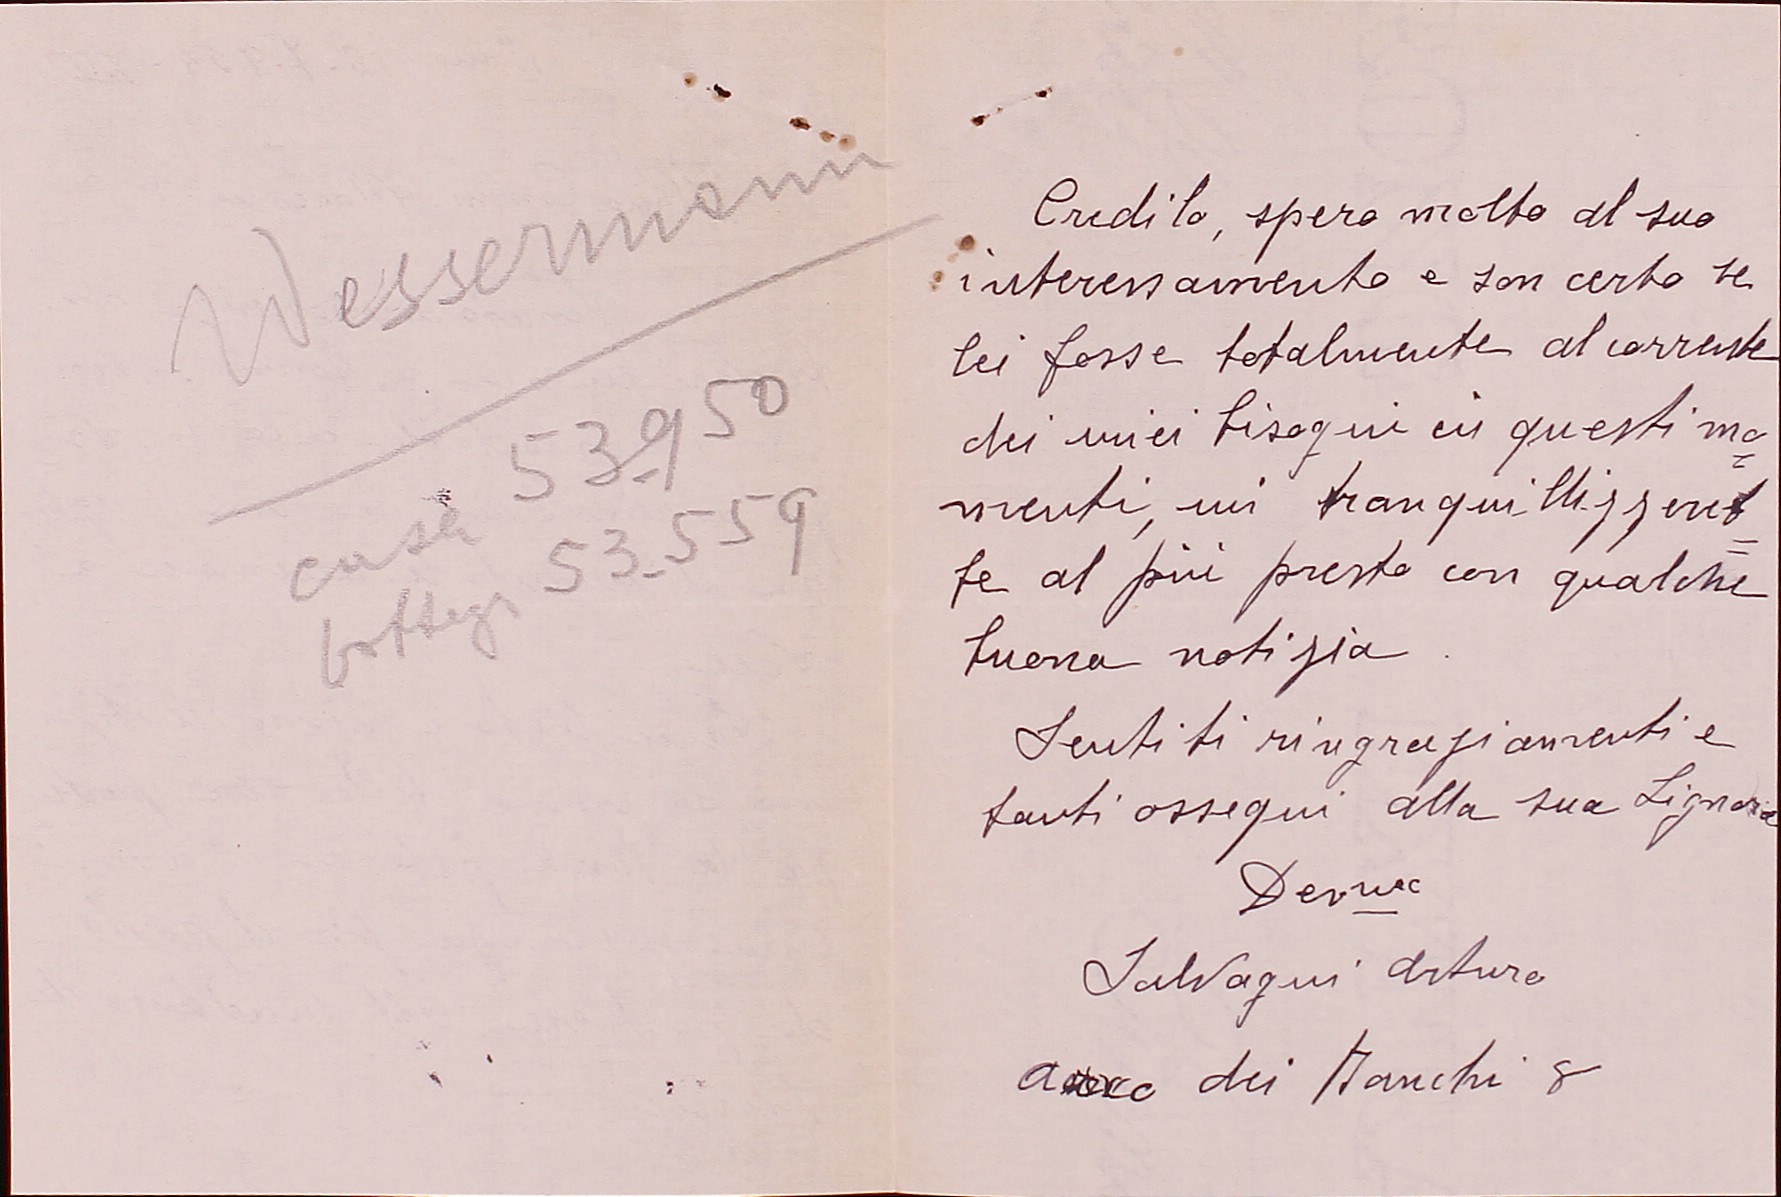 Wessermann
casa 53-950
bottega 53-559
Credilo, spero molto al suo
interessamento e son certo se
lei fosse totalmente al corrente
dei miei bisogni in questi mo=
menti, mi tranquillizzereb=
be al più presto con qualche
buona notizia.
Sentiti ringraziamenti e
tanti ossequi alla sua Signora
Dev.mo
Salvagni Arturo
dei Banchi 8